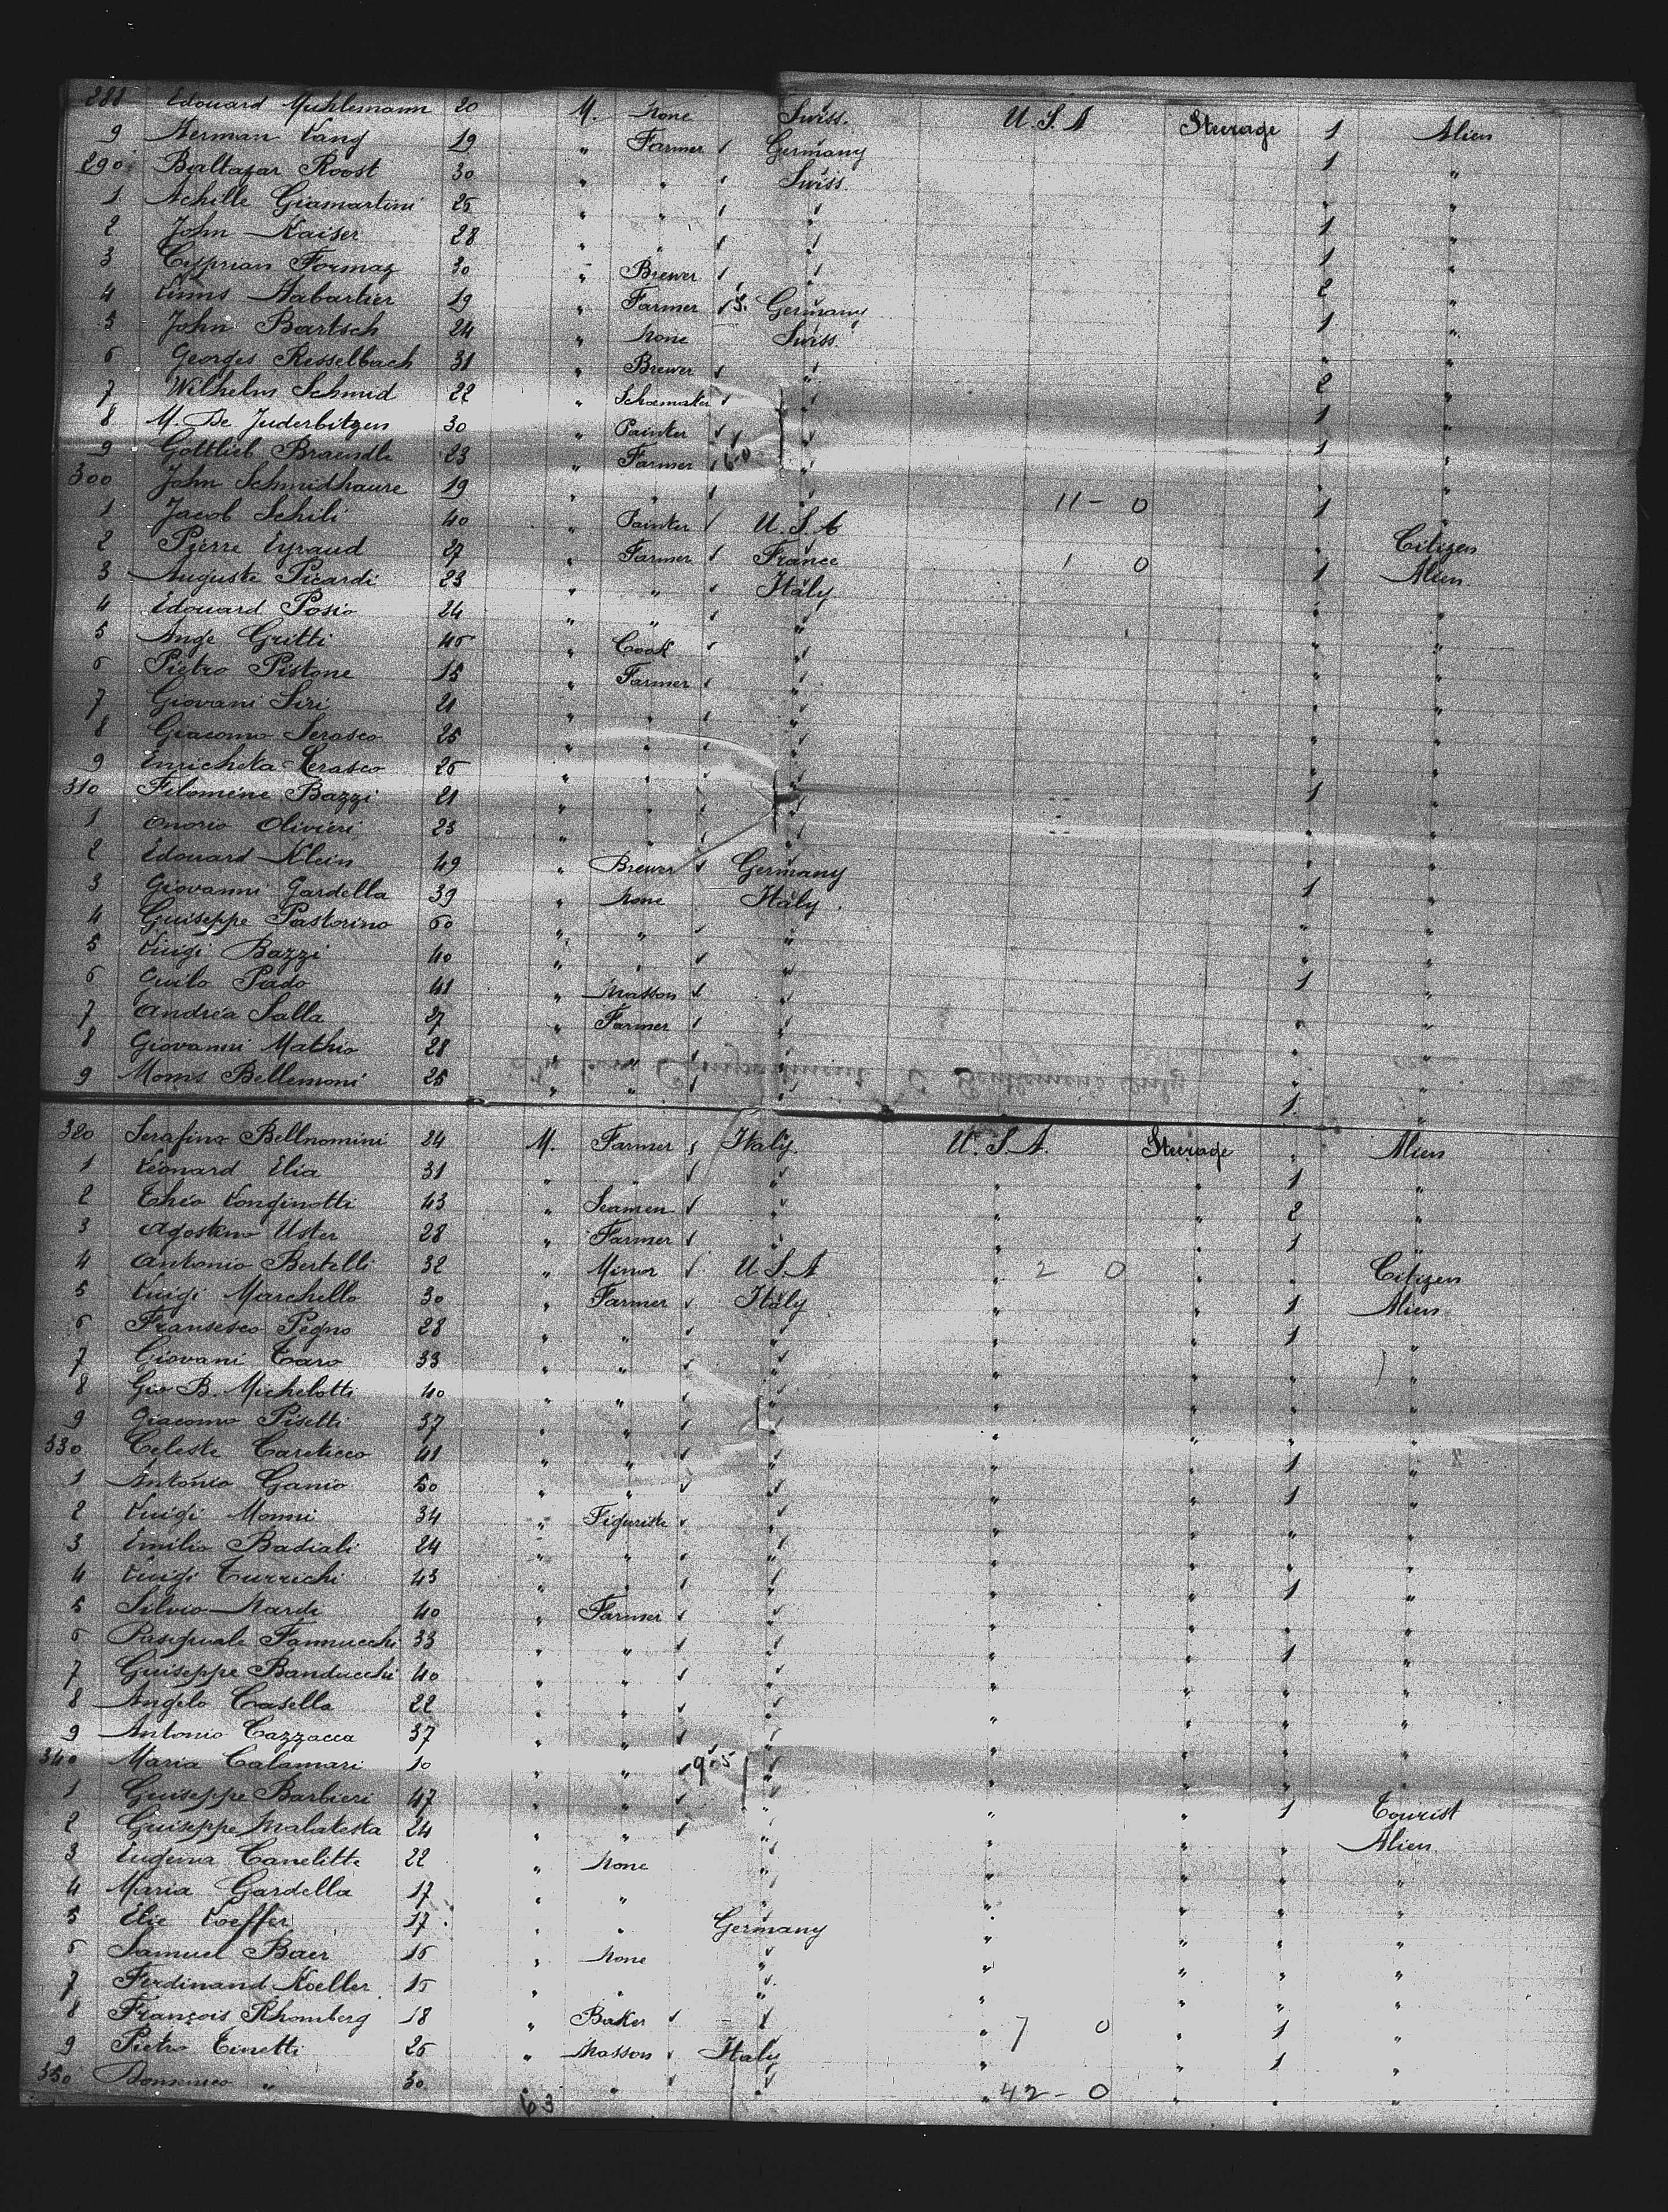 288 Edouard Muhlemann 20 M. None Swiss. U.S.A Steerage 1 Alien
9 Herman Vang 19 " Farmer Germany 1 "
290 Baltazar Roost 30 " " Swiss " "
1 Achille Giamartini 25 " " " 1 "
2 John Kaiser 28 " " " 1 "
3 Cyprian Formaz 30 " Brewer " 2 "
4 19 " Farmer Germany 1 "
5 John Bartsch 24 " None Swiss. " "
6 Georges Resselbach 31 " Brewer " 2 "
7 Wilhelm Schmid 22 " " 1 "
8 M. De Juderbitzen 30 " Painter " 1 "
9 Gottlieb Braendle 23 " Farmer " " "
300 John Schmidhaure 19 " " " 11 - 0 1 "
1 Jacob Schili 40 " Painter U.S.A " Citizen
2 Pierre Eyraud 27 " Farmer France 1 0 1 Alien
3 Auguste Picardi 23 " " Italy " "
4 Edouard Posio 24 " " " " "
5 Ange Gritti 45 " Cook " " "
6 Pietro Pistone 15 " Farmer " " "
7 Giovani Siri 21 " " " " "
8 Giacomo Serasco 25 " " " " "
9 Enricheta Cerasco 26 " " " 1 "
310 Filomène Bazzi 21 " " " "
1 Onorio Olivieri 23 " " " " "
2 Edouard Klein 49 " Brewer Germany 1 "
3 Giovanni Gardella 39 " None Italy. " "
4 Guiseppe Pastorino 60 " " " " "
5 Luigi Bazzi 40 " " " 1 "
6 Pado 41 " Masson " " "
7 Andrea Salla 27 " Farmer " " "
8 Giovanni Mathio 28 " " " " "
9 Moms Bellemoni 25 " " " 1 "
320 Serafino Bellnomini 24 M. Farmer Italy. U.S.A. Steerage " Alien
1 Léonard Elia 31 " " " " " 1 "
2 Théo Longinotti 43 " Seamen " " " 2 "
3 Agostino Uster 28 " Farmer " " " 1 "
4 Antonio Bertelli 32 " Minor U.S.A " 2 0 " " Citizen
5 Luigi Marchello 30 " Farmer Italy " " 1 Alien
6 Fransesco Pegno 28 " " " " " 1 "
7 Giovani Caro 33 " " " " " " "
8 Gio B. Michelotti 40 " " " " " " "
9 Giacomo Pisetti 37 " " " " " " "
330 Celeste Careticco 41 " " " " " 1 "
1 Antonio Ganio 50 " " " " " 1 "
2 Luigi Monni 34 " Figuriste " " " " "
3 Emilio Badiali 24 " " " " " " "
4 Luigi Turrichi 43 " " " " " 1 "
5 Silvio Nardi 40 " Farmer " " " " "
6 Pasquale Fannucchi 33 " " " " " 1 "
7 Guiseppe Banducchi 40 " " " " " " "
8 Angelo Casella 22 " " " " " " "
9 Antonio Cazzacca 37 " " " " " " "
340 Maria Calamari 10 " " 9.5 " " " " "
1 Guiseppe Barbieri 47 " " " " " 1 Tourist
2 Guiseppe Malatesta 24 " " " " " " Alien
3 Eugenia Canelitti 22 " None " " " " "
4 Maria Gardella 17 " " " " " " "
5 Elie 17 " " Germany " " " "
6 Samuel Baer 16 " None " " " " "
7 Ferdinand Koeller 15 " " " " " " "
8 François Rhomberg 18 " Baker " " 7 0 " 1 "
9 Pietro Tinetti 26 " Masson Italy " " 1 "
350 Domenico " 30 " " " " 42 - 0 " " "
63